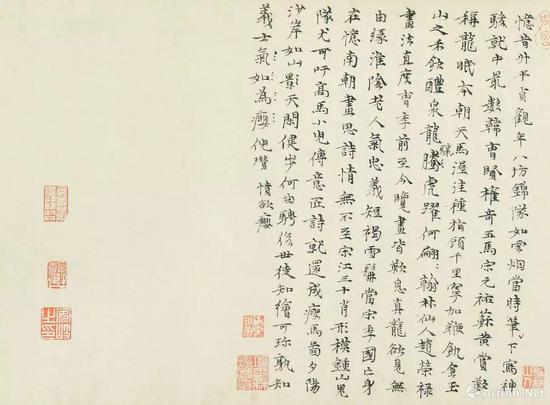 憶昔升平貞觀年八坊錦隊如雲烟當時筆〻下寫神
駿就中最數韓曹賢權奇五馬宋元祐蘇黃賞歎
稱龍眠本朝天馬渥洼種指顧千里寧加鞭飢食玉
山之禾飲醴泉龍驤騰虎躍何翩〻翰林仙人趙榮祿
畫法直度曹韋前至今覽畫皆歎息真龍欲見無
由緣淮陰老人氣忠義短褐雪髯當宋季國亡身
在憶南朝畫思詩情無不至宋江三十肖形模鍾山鬼
隊尤可吁高馬小兒傳意匠詩就還成瘦馬圖夕陽
沙岸如山影天閑健步何由騁後世徒知繪可珍孰知
義士氣如為癭倪瓚 憤欲癭
Artron.Net